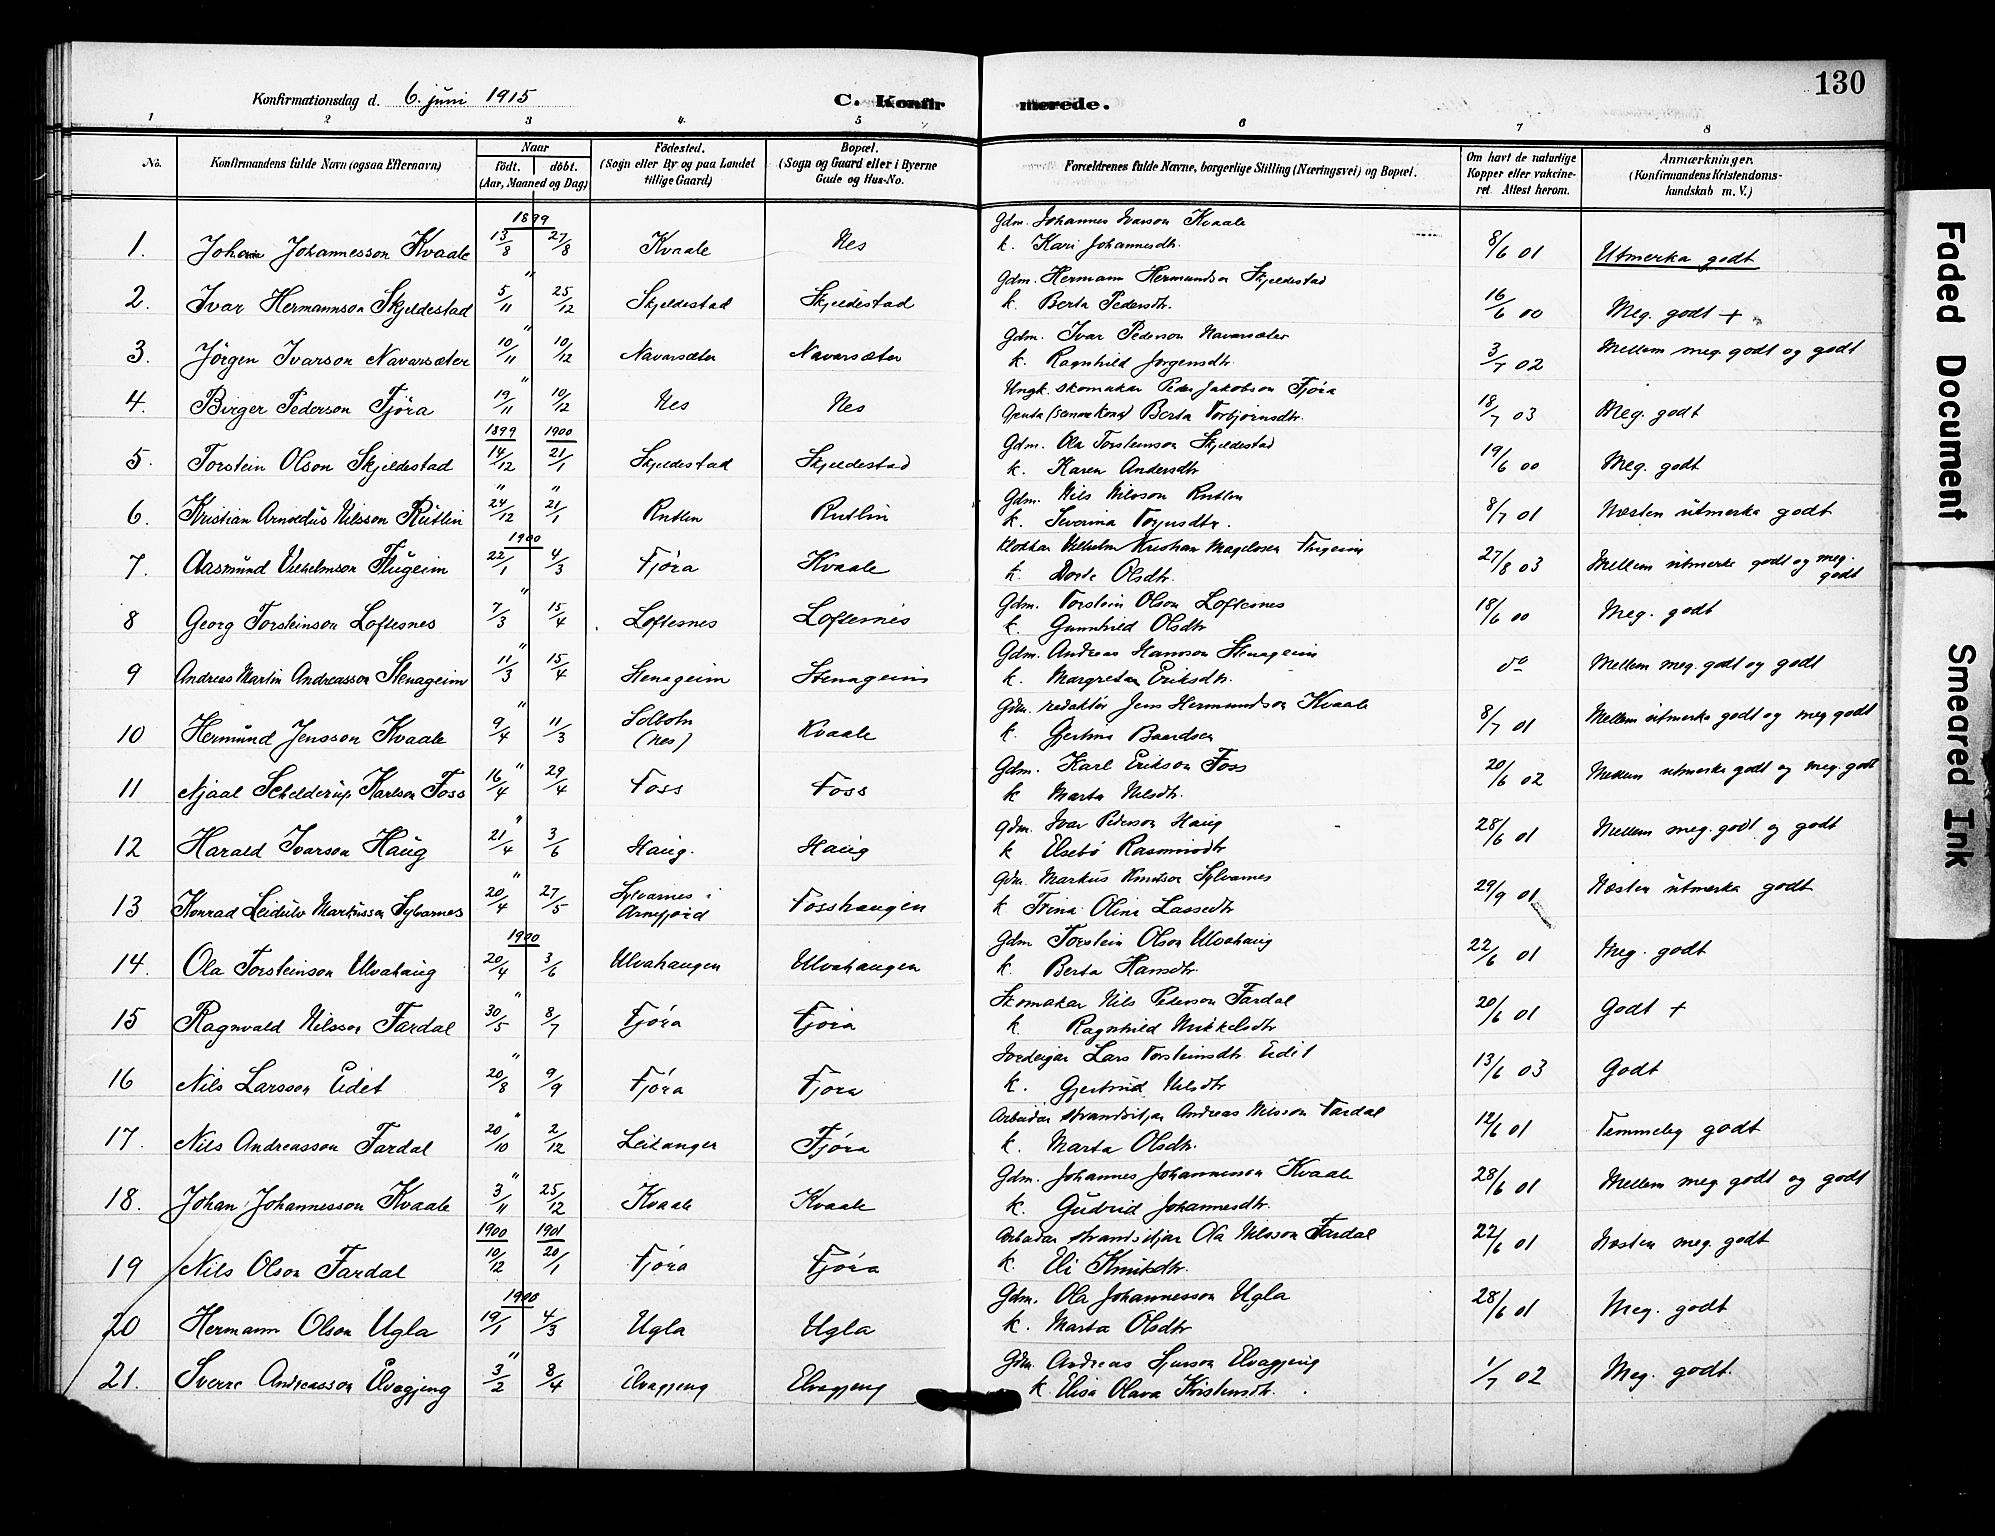 130
Konfirmationsdag d. 6. juni 1915
C. Konfirmerede.
1 2 3 4. 5 6 7 8
No. Konfirmandens fulde Navn (ogsaa Efternavn) Naar födt. döbt. (Aar, Maaned og Dag) Födested. (Sogn eller By og paa Landet tillige Gaard) Bopæl. (Sogn og Gaard eller i Byerne Gade og Hus-No. Forældrenes fulde Navne, borgerlige Stilling (Næringsvei) og Bopæl. Om havt de naturlige Kopper eller vakcineret. Attest herom. Anmærkninger. (Konfirmandens Kristendomskundskab m. V.)
1899
1. Johan Johannesson Kvaale 13/8 27/8 Kvaale Nes Gdm. Johannes Ivarson Kvaale
k. Kari Johannesdtr. 8/6 01 Utmerka godt
2. Ivar Hermannson Skjeldestad " 5/11 25/12 Skjeldestad Skjeldestad Gdm. Hermann Hermundson Skjeldestad
k. Berta Pedersdtr. 16/6 00 Meg. godt +
3. Jörgen Ivarson Navarsæter " 10/11 10/12 Navarsæter Navarsæter Gdm. Ivar Pederson Navarsæter
k. Ragnhild Jørgensdtr. 3/7 02 Mellem meg. godt og godt
4. Birger Pederson Fjöra " 19/11 10/12 Nes Nes Ungk. skomakar Peder Jakobson Fjöra
Gjenta (senere kona) Berta Torbjørnsdtr. 18/7 03 Meg. godt
1899 1900
5. Torstein Olson Skjeldestad 14/12 21/1 Skjeldestad Skjeldestad Gdm. Ola Torsteinson Skjeldestad
k. Karen Andersdtr 19/6 00 Meg. godt
6. Kristian Arnoldus Nilsson Rutlin " 24/12 " 21/1 Rutlin Rutlin Gdm. Nils Nilsson Rutlin
k. Severina 8/7 01 Næsten utmerka godt
1900
7. Aasmund Vilhelmson Flugeim 22/1 4/3 Fjöra Kvaale Klokkar Vilhelm Kristian Flugeim
k. Dorte Olsdtr. 27/8 03 Mellem utmerka godt og meg. godt
8 Georg Torsteinson Loftesnes " 7/3 15/4 Loftesnes Loftesnes Gdm. Torstein Olson Loftesnes
k. Gunnhild Olsdtr 18/6 00 Meg. godt
9 Andreas Martin Andreasson Stenageim " 11/3 15/4 Stenageim Stenageim Gdm. Andreas Hansson Stenageim
k. Margreta Eriksdtr. do Mellem meg. godt og godt
10 Hermund Jensson Kvaale " 9/4 11/3 (Nes) Kvaale Gdm. redaktør Jens Hermundson Kvaale
k. Gjertina Baardsen 8/7 01 Mellem utmerka godt og meg godt
11 Njaal Schelderup Karlson Foss " 16/4 29/4 Foss Foss Gdm. Karl Erikson Foss
k Marta Nilsdtr. 20/6 02 Mellem utmerka godt og meg. godt
12 Harald Ivarson Haug " 21/4 3/6 Haug. Haug Gdm. Ivar Pederson Haug
k Elsebö Rasmusdtr 28/6 01 Mellem meg. godt og godt
13 Konrad Leidulv Markusson Sylvarnes " 20/4 27/5 Sylvarnes i Arnefjord Fosshaugen Gdm. Markus Knutson Sylvarnes
k Trina Olina Lassedtr 29/9 01 Næsten utmerka godt
1900
14. Ola Torsteinson Ulvahaug 20/4 3/6 Ulvahaugen Ulvahaugen Gdm Torstein Olson Ulvahaug
k. Berta Hansdtr. 22/6 01 Meg. godt
15 Ragnvald Nilsson Fardal " 30/5 8/7 Fjöra Fjöra Skomakar Nils Pederson Fardal
k. Ragnhild Mikkelsdtr 20/6 01 Godt +
16 Nils Larsson Eidet " 20/8 9/9 Fjöra Fjöra Lars Torsteinsdtr. Eidet
k. Gjertrud Nilsdtr 13/6 03 Godt
17. Nils Andreasson Fardal " 20/10 2/12 Leikanger Fjöra Arbeidar strandsitjar Andreas Nilsson Fardal
k. Marta Olsdtr. 12/6 01 Temmeleg godt
18. Johan Johannesson Kvaale " 3/11 25/12 Kvaale Kvaale Gdm. Johannes Johannesson Kvaale
k. Gudrid Johannesdtr. 28/6 01 Mellem meg godt og godt
1900 1901
19 Nils Olson Fardal 10/12 20/1 Fjöra Fjöra Arbeidar strandsitjar Ola Nilsson Fardal
k. Eli Knutsdtr. 22/6 01 Næsten meg. godt
1900
20 Hermann Olson Ugla 19/1 4/3 Ugla Ugla Gdm. Ola Johannesson Ugla
k. Marta Olsdtr 28/6 01 Meg. godt
21. Sverre Andreasson Elvagjeng " 3/2 8/4 Elvagjeng Elvagjeng Gdm. Andreas Sjurson Elvagjeng
k. Elisa Olava Kristensdtr. 1/7 02 Meg. godt.
Faded Document
Smeared Ink